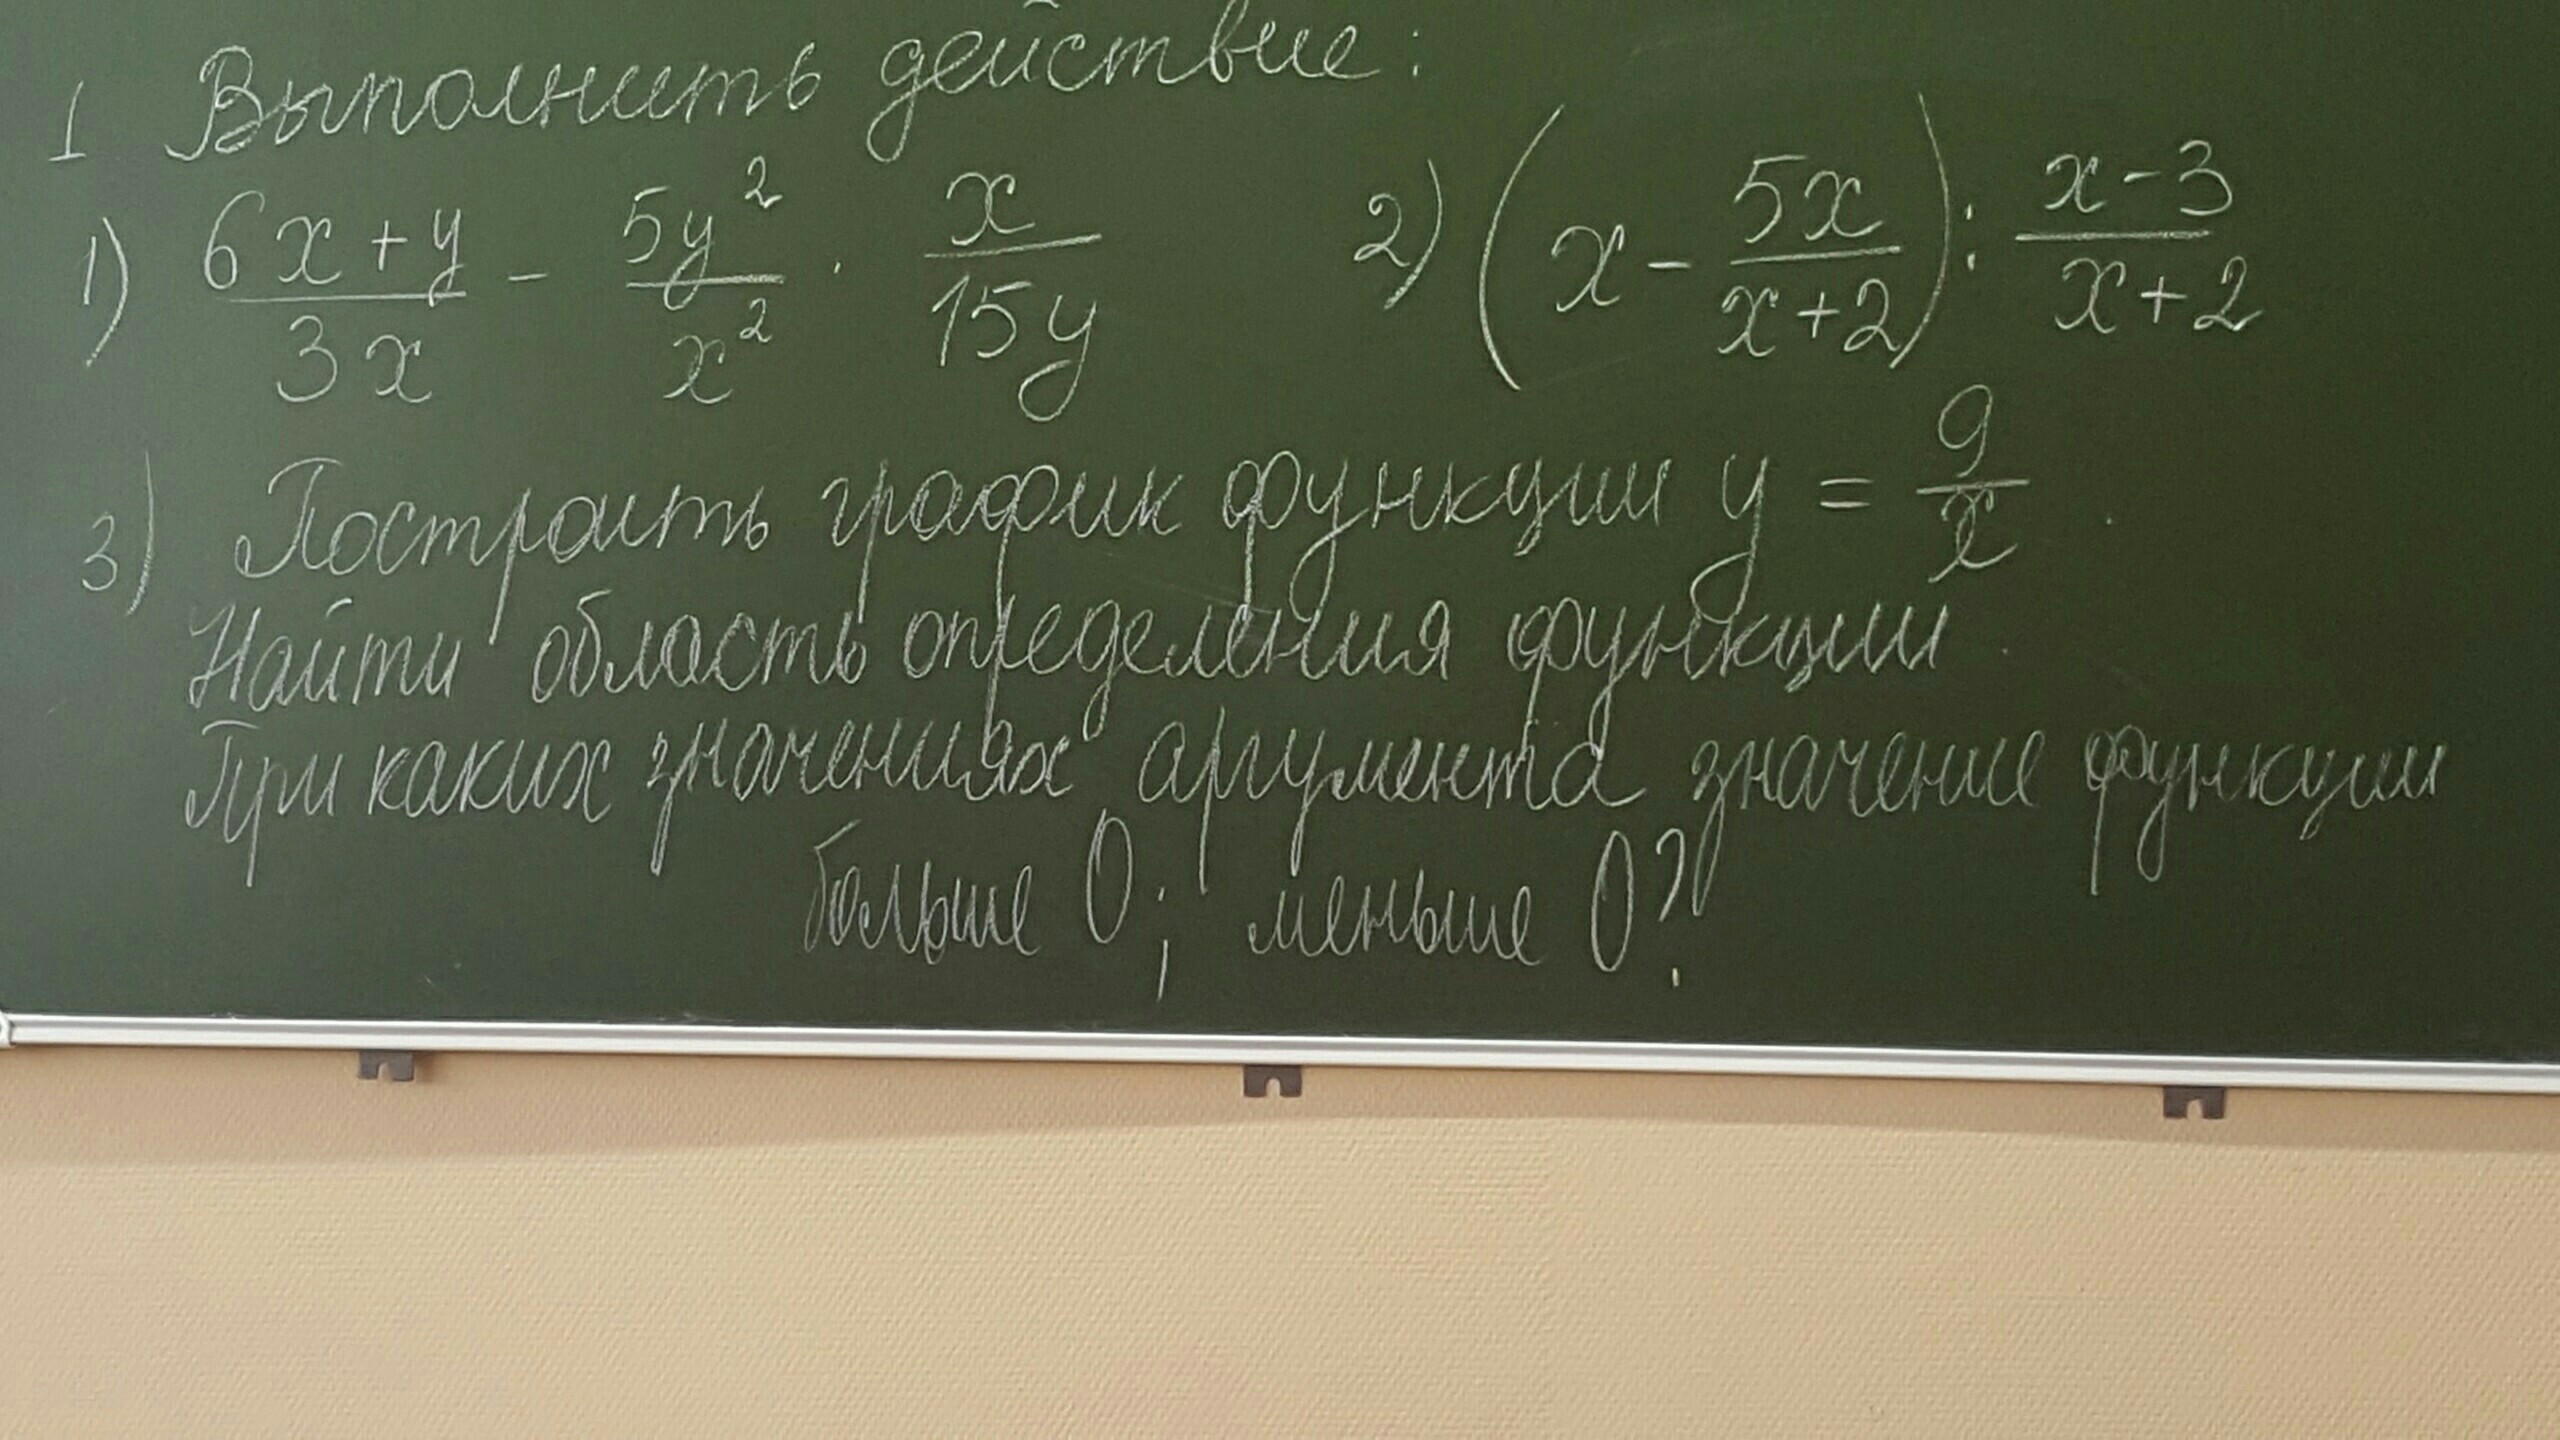 1 Выполнить действие:
1) \frac{6x+y}{3x} - \frac{5y^2}{x^2} \cdot \frac{x}{15y} 2) \left(x - \frac{5x}{x+2}\right) : \frac{x-3}{x+2}
3) Построить график функции y = \frac{9}{x}.
Найти область определения функции.
При каких значениях аргумента значение функции
больше 0; меньше 0?